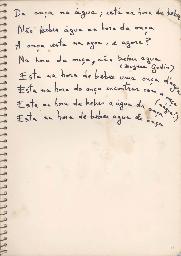 Da onça na água; está na hora de beber
Não beber água na hora da onça
A onça está na água, e agora?
Na hora da onça, não beber água
(Eugen Gudin)
Está na hora de beber uma onça d'água
Está na hora da onça encontrar com a água
Está na hora de beber a água da onça (água!)
Está na hora de beber água de onça